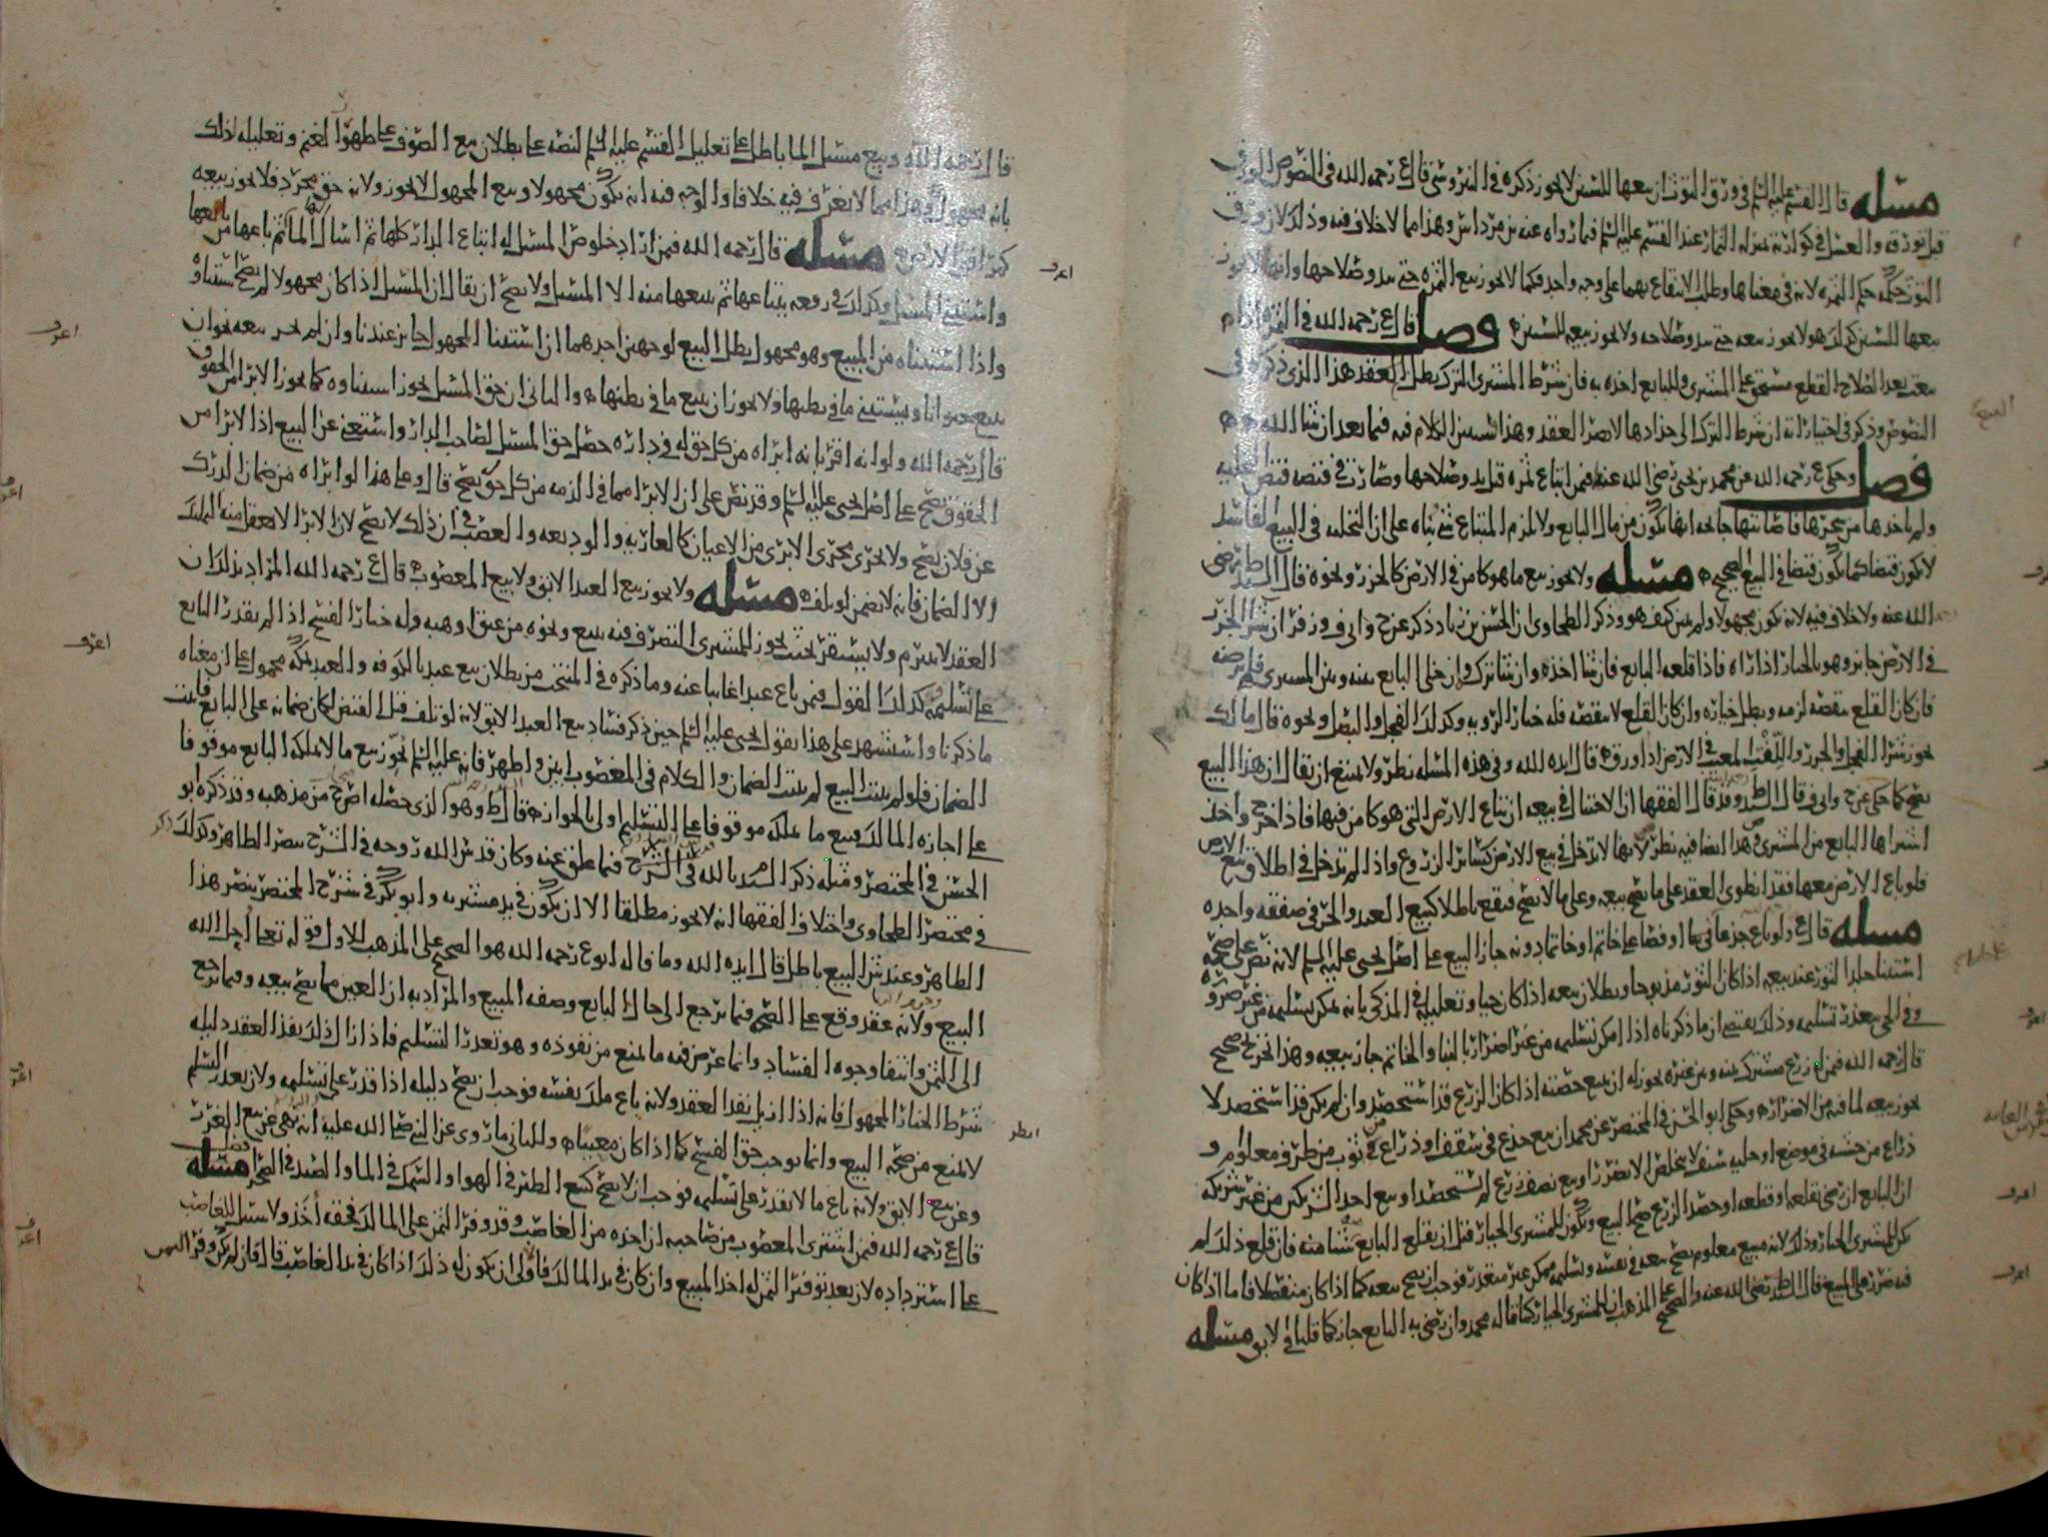 مسله قال القسم عليه السلم في ورق التوت ان بيعها للسنين لا يجوز ذكره في النيروسي قال ع رحمه الله في النصوص الورق
قبل توزقه والعسل في كوارته بمنزلة الثمار عند القسم عليه السلم فيما رواه عنه بن مرداس وهذا مما لا خلاف فيه وذلك لان ورق
التوت حكمه حكم الثمره لانه في معناها وطلب الانتفاع بهما على وجه واحد فكما لا يجوز بيع الثمره حتى يبدو صلاحها وانها لا يجوز
بيعها للسنين كذلك هو لا يجوز بيعه حتى يبدو صلاحه ولا يجوز بيعه للسنين فصل قال ع رحمه الله في الثمره اذا
بيعت بعد الصلاح القطع مستحق على المشتري وللبايع اخذه به فان شرط المشتري الترك بطل العقد هذا الذي ذكره في
النصوص وذكر في اختياراته ان شرط الترك الى جذاذها لا يضر العقد وهذا سنبين الكلام فيه فيما بعد ان شا الله
فصل وحكى ع رحمه الله عن محمد بن يحيى رضي الله عنه فيمن ابتاع ثمره قبل بدو صلاحها وصارت في قبضه قبض التخليه
ولم ياخذها من شجرها فاصابتها جايحه انها تكون من مال البايع ولا يلزم المبتاع شي بناه على ان التخليه في البيع الفاسد
لا يكون قبضا كما يكون قبضا في البيع الصحيح مسله ولا يجوز بيع ما هو كامن في الارض كالجزر ونحوه قال السيد ط رضي
الله عنه ولا خلاف فيه لانه يكون مجهولا ولم يبن كيف هو وذكر الطحاوي ان الحسن بن زياد ذكر عن ح وابي ف وزفر ان شرا الجزر
في الارض جايز وهو بالخيار اذا راه فاذا قلعه البايع فان شا اخذه وان شا ترك وان خلى البايع بينه وبين المشتري فلم يرضه
فان كان القلع ينقصه لزمه وبطل خياره وان كان القلع لا ينقصه فله خيار الرويه وكذلك الفجل والبصل ونحوه قال مالك
يجوز شرا الفجل والجزر واللفت المغيب في الارض اذا ورق قال ايده الله وفي هذه المسله نظر ولا يمتنع ان يقال ان هذا البيع
يصح كما حكي عن ح وابي ف قال السيد ط وقد قال الفقها ان الاحتيال في بيعه ان يبتاع الارض التي هو كامن فيها فاذا اخرج واخذ
اشتراها البايع من المشتري وفي هذا ايضا فيه نظر لانها لا تدخل في بيع الارض كساير الزروع واذا لم تدخل في اطلاق بيع الارض
فلو باع الارض معها فقد انطوى العقد على ما يصح بيعه وعلى ما لا يصح فيقع باطلا كبيع العبد والحر في صفقه واحده
مسله قال ع ولو باع جذعا في بنا او فصا على خاتم او خاتما دونه جاز البيع على اصل يحيى عليه السلم لانه نص على صحه
استثنا جلد الثور عند بيعه اذا كان الثور مذبوحا وبطلان بيعه اذا كان حيا وتعليله في المذكى بانه يمكن تسليمه من غير ضرر
وفي الحي يتعذر تسليمه وذلك يقتضي ان ما ذكرناه اذا امكن تسليمه من غير اضرار بالبنا والخاتم جاز بيعه وهذا تخريج صحيح
قال رحمه الله فيمن له زرع مشترك بينه وبين غيره يجوز له ان يبيع حصته اذا كان الزرع قد استحصد وان لم يكن قد استحصد لا
يجوز بيعه لما فيه من الاضرار وحكى ابو الحسن في المختصر عن محمد ان بيع جذع في سقف او ذراع من ثوب من طرف معلوم و
ذراع من خشبه في موضع او حليه سيف لا يتخلص الا بضرر او بيع نصف زرع لم يستحصد او بيع احد الشريكين من غير شريكه
ان البايع ان رضي بقلعه او قطعه او حصد الزرع صح البيع ويكون للمشتري الخيار قبل ان يقلع البايع شيا منه فان قلع ذلك لم
يكن للمشتري الخيار وذلك لانه مبيع معلوم يصح بيعه في نفسه وتسليمه ممكن غير متعذر فوجب ان يصح بيعه كما اذا كان منفصلا فاما اذا كان
فيه ضرر على المبيع قال السيد ط رضي الله عنه والصحيح على المذهب ان للمشتري الخيار كما قاله محمد وان رضي به البايع جاز كما قلنا في الابق مسله
قال رحمه الله وبيع مسيل الما باطل على تعليل القسم عليه السلم لنصه على بطلان بيع الصوف على ظهر الغنم وتعليله لذلك
بانه مجهول وهذا مما لا يعرف فيه خلافا والوجه فيه انه يكون مجهولا وبيع المجهول لا يجوز ولانه حق مجرد فلا يجوز بيعه
كمرافق الارض مسله قال رحمه الله فيمن اراد خلوص المسيل له ابتاع الدار كلها ثم اسال الما ثم باعها من بايعها
واستثنى المسيل وكذلك في رقعه يبتاعها ثم يبيعها منه الا المسيل ولا يصح ان يقال ان المسيل اذا كان مجهولا لم يصح استثناوه
واذا استثناه من المبيع وهو مجهول بطل البيع لوجهين احدهما ان استثنا المجهول جايز عندنا وان لم يجز بيعه نحو ان
يبيع حيوانا ويستثني ما في بطنها ولا يجوز ان يبيع ما في بطنها والثاني ان حق المسيل يجوز استثناوه كما يجوز الابرا من الحقوق
قال رحمه الله ولو انه اقر بانه ابراه من كل حق له في داره حصل حق المسيل لصاحب الدار واستغنى عن البيع اذ الابرا من
الحقوق يصح على اصل يحيى عليه السلم وقد نص على ان الابرا مما في الذمه من كل حق يصح قال وعلى هذا لو ابراه من ضمان الدرك
عن فلان يصح ولا يجري مجرى الابرى من الاعيان كالعاريه والوديعه والغصب في ان ذلك لا يصح لان الابرا لا يعقل منه التمليك
الا الضمان فانه لا يضمن لو تلف مسله ولا يجوز بيع العبد الابق ولا بيع المغصوب قال ع رحمه الله المراد بذلك ان
العقد لا يبرم ولا يستقر بحيث يجوز للمشتري التصرف فيه ببيع ونحوه من عتق او هبه وله خيار الفسخ اذا لم يقدر البايع
على تسليمه كذلك القول فيمن باع عبدا غايبا عنه وما ذكره في المنتخب من بطلان بيع عبد بالكوفه والعبد بمكه محمول على ان معناه
ما ذكرنا واستشهد على هذا بقول يحيى عليه السلم حين ذكر فساد بيع العبد الابق لانه لو تلف قبل القبض لكان ضمانه على البايع فاثبت
الضمان فلو لم يثبت البيع لم يثبت الضمان والكلام في المغصوب ابين واظهر فانه عليه السلم يجوز بيع ما لا يملكه البايع موقوفا
على اجازه المالك فبيع ما يملكه موقوفا على التسليم اولى بالجواز قال ط وهو الذي حصله اصح من مذهبه وقد ذكره ابو
الحسن في المختصر ومثله ذكر السيد بالله في الشرح فيما علق عنه وكان قدس الله روحه في الشرح ينصر الظاهر وكذلك ذكر
في مختصر الطحاوي واختلاف الفقها انه لا يجوز مطلقا الا ان يكون في يد مشتريه وابو بكر في شرح المختصر ينصر هذا
الظاهر وعند ش البيع باطل قال ايده الله وما قاله ابو ع رحمه الله هو الصحيح على المذهب للاول قوله تعلى احل الله
البيع ولانه عقد وقع على الصحه فيما يرجع الى حال البايع وصفه المبيع والمراد به ان العين مما يصح بيعه وفيما يرجع
الى الثمن وانتفا وجوه الفساد وانما عرض فيه ما يمنع من نفوذه وهو تعذر التسليم فاذا زال ذلك نفذ العقد دليله
شرط الخيار المجهول فانه اذا ازيل نفذ العقد ولانه باع ملك نفسه فوجب ان يصح دليله اذا قدر على تسليمه ولان تعذر التسليم
لا يمنع من صحه البيع وانما يوجب حق الفسخ كما اذا كان معيبا وللثاني ما روي عن النبي صلى الله عليه انه نهى عن بيع الغرر
وعن بيع الابق ولانه باع ما لا يقدر على تسليمه فوجب ان لا يصح كبيع الطير في الهوا والسمك في الما والصيد في الصحرا مسله
قال ع رحمه الله فيمن اشترى المغصوب من صاحبه ان اخذه من الغاصب وقد وفر الثمن على المالك فحقه اخذ ولا سبيل للغاصب
على استرداده لان بعد توفير الثمن له اخذ المبيع وان كان في يد المالك فاولى ان يكون له ذلك اذا كان في يد الغاصب قال فان لم يكن وفر الثمن